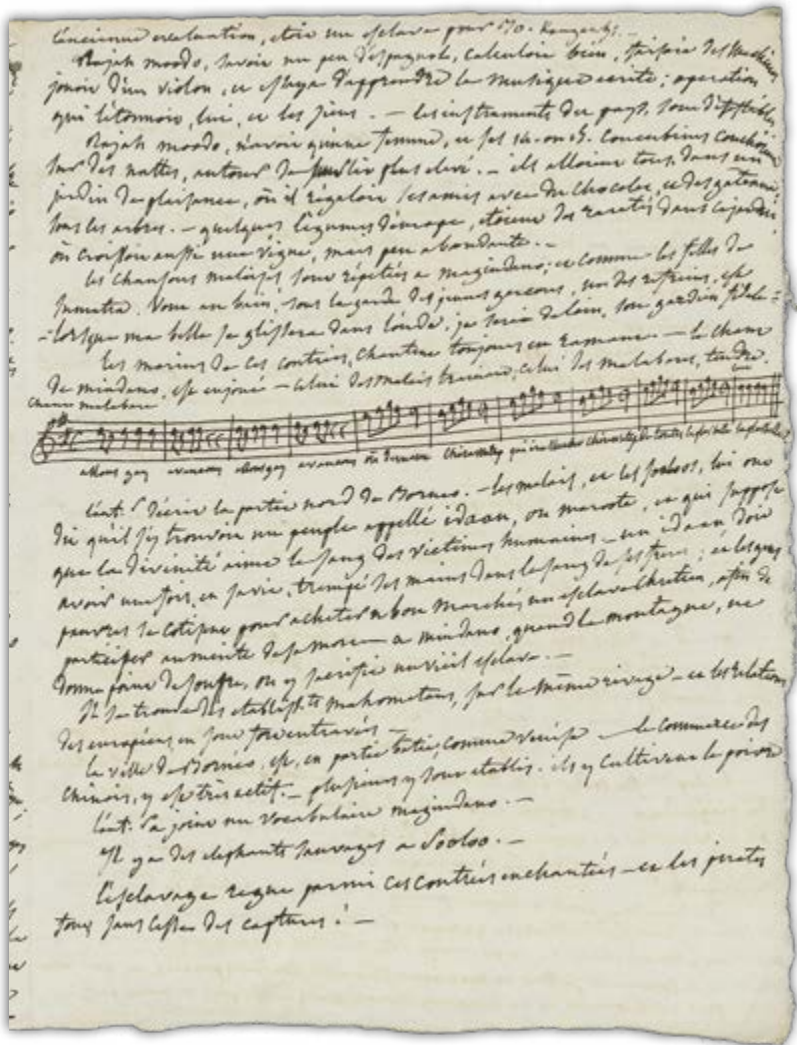 l'ancienne evaluation, etoit un esclave pour 50. Kangans. —
Rajah moodo, savoit un peu d'espagnol, calculoit bien, faisoit des machines
jouoit d'un violon, et essaya d'apprendre la musique ecrite; operation
qui l'étonnoit, lui, et les siens. — les instruments du pays, sont
Rajah moodo, n'avoit qu'une femme, et ses 14. ou 15. concubines couchoient
sur des nattes, autour de lit plus elevé. — ils alloient tous, dans un
jardin de plaisance, où il régaloit ses amis avec du chocolat, et des gateaux
sous les arbres. — quelques légumes d'europe, etoient des raretés dans ce jardin
où croissoit aussi une vigne, mais peu abondante. —
les chansons malaises sont répetées a magindano; et comme les filles de
sumatra. vont au bain, sous la garde des jeunes garcons, un des refreins, est
- lorsque ma belle se glissera dans l'onde, je serai de loin, son gardien fidele =
les marins de ces contrées, chantent toujours en ramant. — le chant
de mindano, est enjoué — celui des malais , celui des malabares, tendre.
chant malabare
allons gay avancons allons gay avancons
l'aut. r décrit la partie nord de Borneo. — les malais, et les sooloos, lui ont
dit qu'il s'y trouvoit un peuple appellé idaan, ou maroots, et qui suppose
que la divinité aime le sang des victimes humaines — un idaan doit
avoir une fois, en sa vie, trempé ses mains dans le sang de ses freres; et les gens
pauvres se cotisent pour acheter a bon marché, un esclave chretien, afin de
participer au merite de sa mort — a mindano, quand la montagne, ne
donne point de souffre, on y sacrifie un vieil esclave. —
Il se trouve des etablists mahometans, sur le même rivage — et les relations
des européens, en sont fort entravées —
la ville de Borneo, est, en partie batie, comme venise — le commerce des
chinois, y est très actif. — plusieurs y sont etablis. ils y cultivent le poivre
l'aut. r a joint un vocabulaire magindano. —
Il y a des elephants sauvages a Sooloo. —
l'esclavage regne parmi ces contrées enchantées — et les pirates
font sans cesse des captures! —